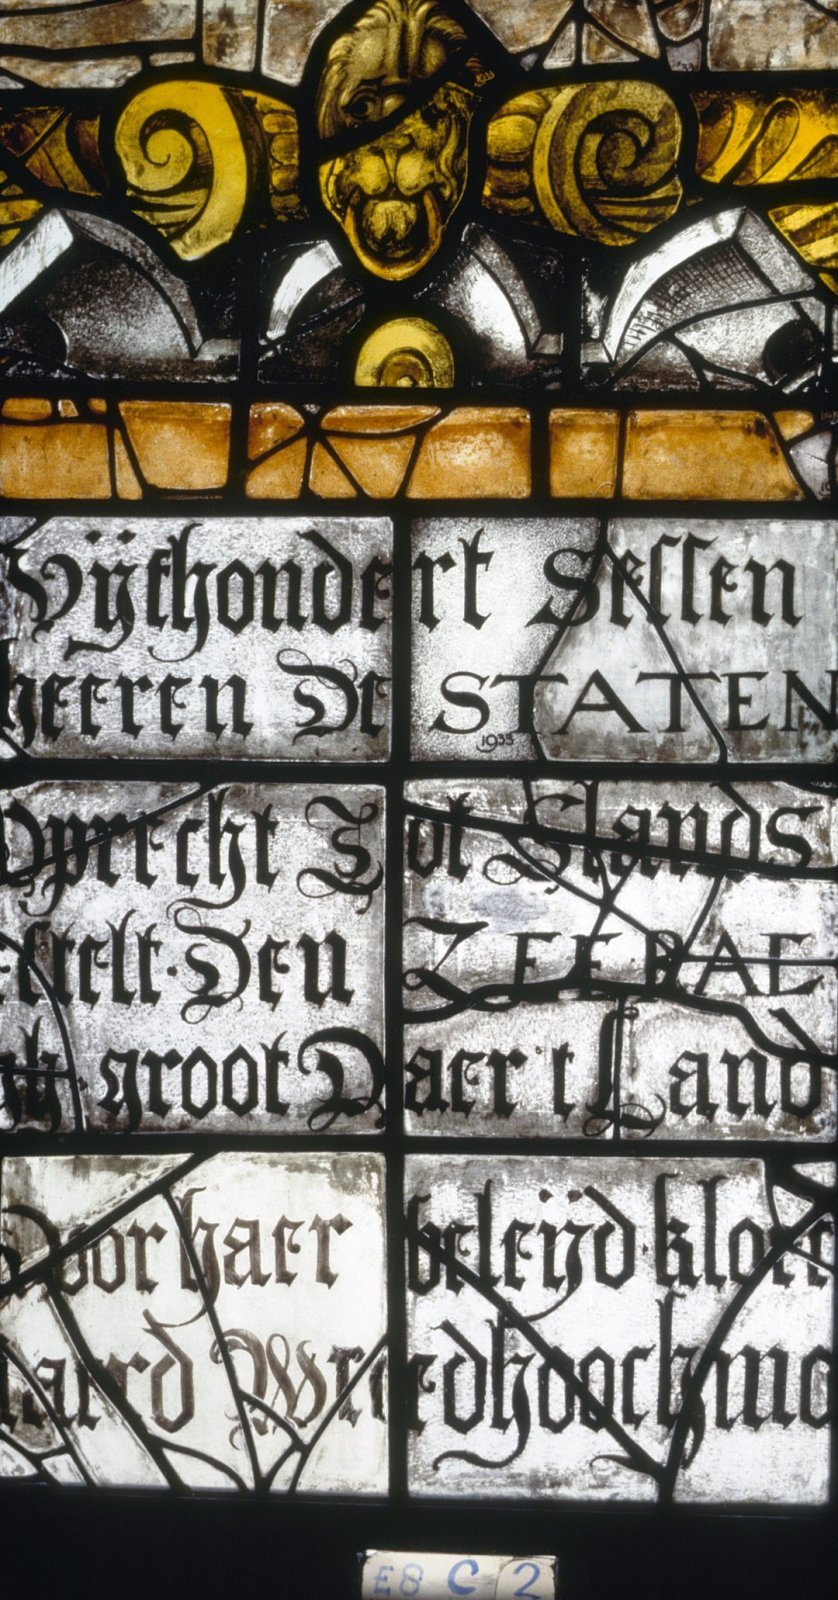 Vijfhondert Sessen
heeren De STATEN
1933
Oprecht Tot Slands
estelt. Den ZEERAE
groot Daer t Land
door haer beleijd kloec
aerd Wreedhoochmo
E8 C 2